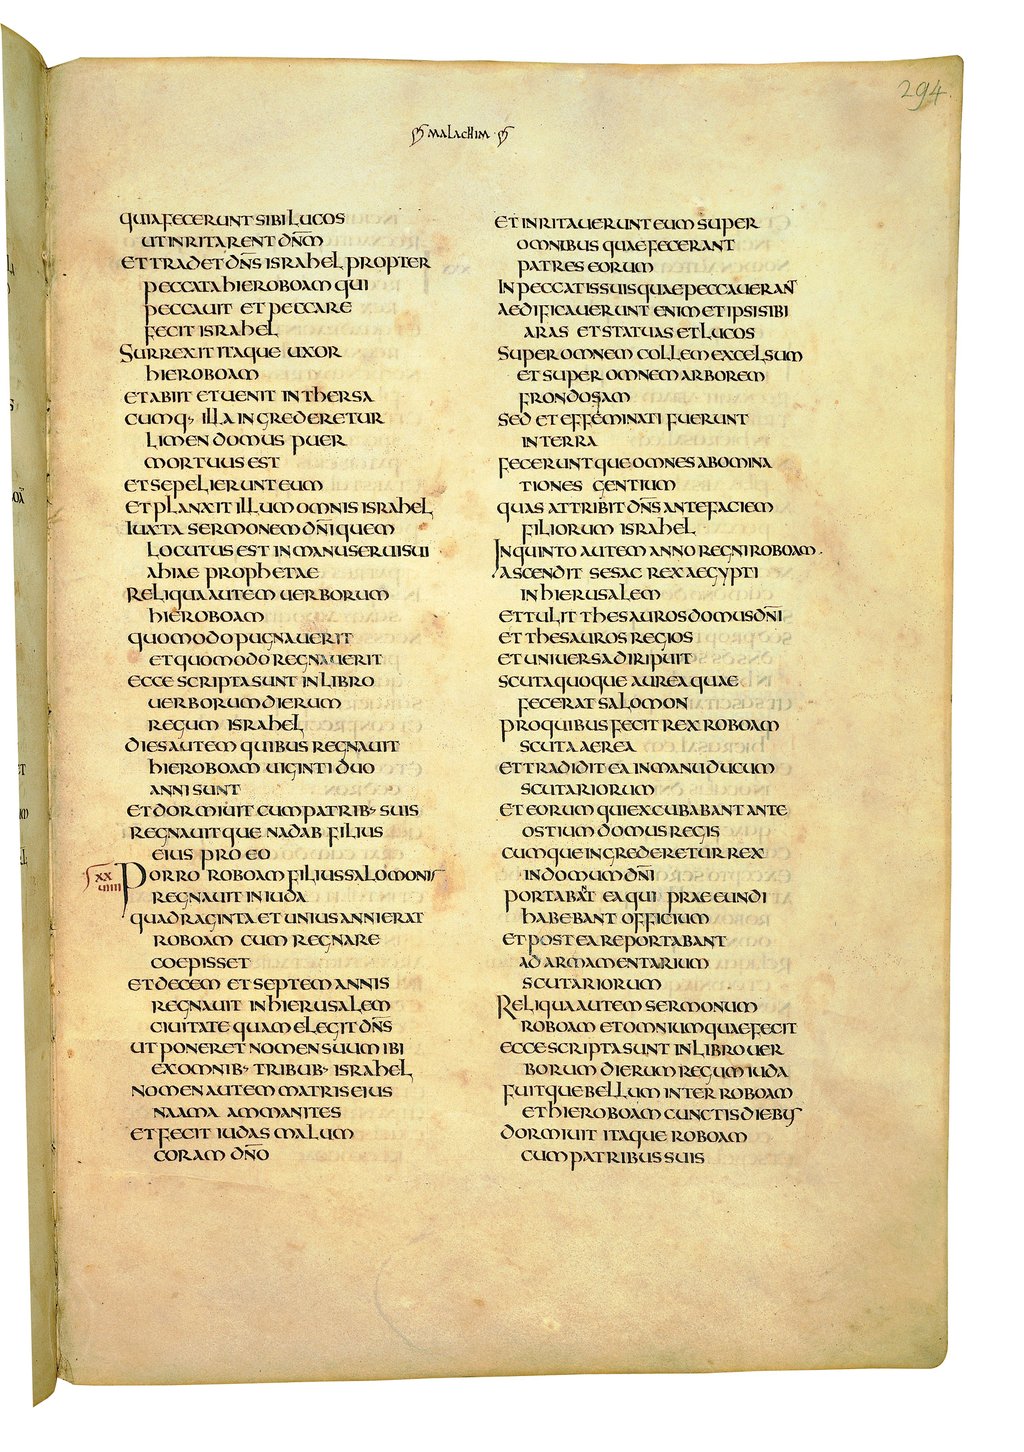 294
MALACHIM
QUIA FECERUNT SIBI LUCOS
UT INRITARENT DN̄M
ET TRADET DN̄S ISRAHEL PROPTER
PECCATA HIEROBOAM QUI
PECCAUIT ET PECCARE
FECIT ISRAHEL
SURREXIT ITAQUE UXOR
HIEROBOAM
ET ABIIT ET UENIT IN THERSA
CUMQ· ILLA INGREDERETUR
LIMEN DOMUS PUER
MORTUUS EST
ET SEPELIERUNT EUM
ET PLANXIT ILLUM OMNIS ISRAHEL
IUXTA SERMONEM DN̄I QUEM
LOCUTUS EST IN MANU SERUI SUI
AHIAE PROPHETAE
RELIQUA AUTEM UERBORUM
HIEROBOAM
QUOMODO PUGNAUERIT
ET QUOMODO REGNAUERIT
ECCE SCRIPTA SUNT IN LIBRO
UERBORUM DIERUM
REGUM ISRAHEL
DIES AUTEM QUIBUS REGNAUIT
HIEROBOAM UIGINTI DUO
ANNI SUNT
ET DORMIUIT CUM PATRIB· SUIS
REGNAUITQUE NADAB FILIUS
EIUS PRO EO
XX
UIIII
PORRO ROBOAM FILIUS SALOMONIS
REGNAUIT IN IUDA
QUADRAGINTA ET UNIUS ANNI ERAT
ROBOAM CUM REGNARE
COEPISSET
ET DECEM ET SEPTEM ANNIS
REGNAUIT IN HIERUSALEM
CIUITATE QUAM ELEGIT DN̄S
UT PONERET NOMEN SUUM IBI
EX OMNIB· TRIBUB· ISRAHEL
NOMEN AUTEM MATRIS EIUS
NAAMA AMMANITES
ET FECIT IUDAS MALUM
CORAM DN̄O
ET INRITAUERUNT EUM SUPER
OMNIBUS QUAE FECERANT
PATRES EORUM
IN PECCATIS SUIS QUAE PECCAUERAN̄T
AEDIFICAUERUNT ENIM ET IPSI SIBI
ARAS ET STATUAS ET LUCOS
SUPER OMNEM COLLEM EXCELSUM
ET SUPER OMNEM ARBOREM
FRONDOSAM
SED ET EFFEMINATI FUERUNT
IN TERRA
FECERUNTQUE OMNES ABOMINA
TIONES GENTIUM
QUAS ATTRIBIT DN̄S ANTE FACIEM
FILIORUM ISRAHEL
IN QUINTO AUTEM ANNO REGNI ROBOAM·
ASCENDIT SESAC REX AEGYPTI
IN HIERUSALEM
ET TULIT THESAUROS DOMUS DN̄I
ET THESAUROS REGIOS
ET UNIUERSA DIRIPUIT
SCUTA QUOQUE AUREA QUAE
FECERAT SALOMON
PRO QUIBUS FECIT REX ROBOAM
SCUTA AEREA
ET TRADIDIT EA IN MANU DUCUM
SCUTARIORUM
ET EORUM QUI EXCUBABANT ANTE
OSTIUM DOMUS REGIS
CUMQUE INGREDERETUR REX
IN DOMUM DN̄I
PORTABANT EA QUI PRAEEUNDI
HABEBANT OFFICIUM
ET POSTEA REPORTABANT
AD ARMAMENTARIUM
SCUTARIORUM
RELIQUA AUTEM SERMONUM
ROBOAM ET OMNIUM QUAE FECIT
ECCE SCRIPTA SUNT IN LIBRO UER
BORUM DIERUM REGUM IUDA
FUITQUE BELLUM INTER ROBOAM
ET HIEROBOAM CUNCTIS DIEBUS
DORMIUIT ITAQUE ROBOAM
CUM PATRIBUS SUIS